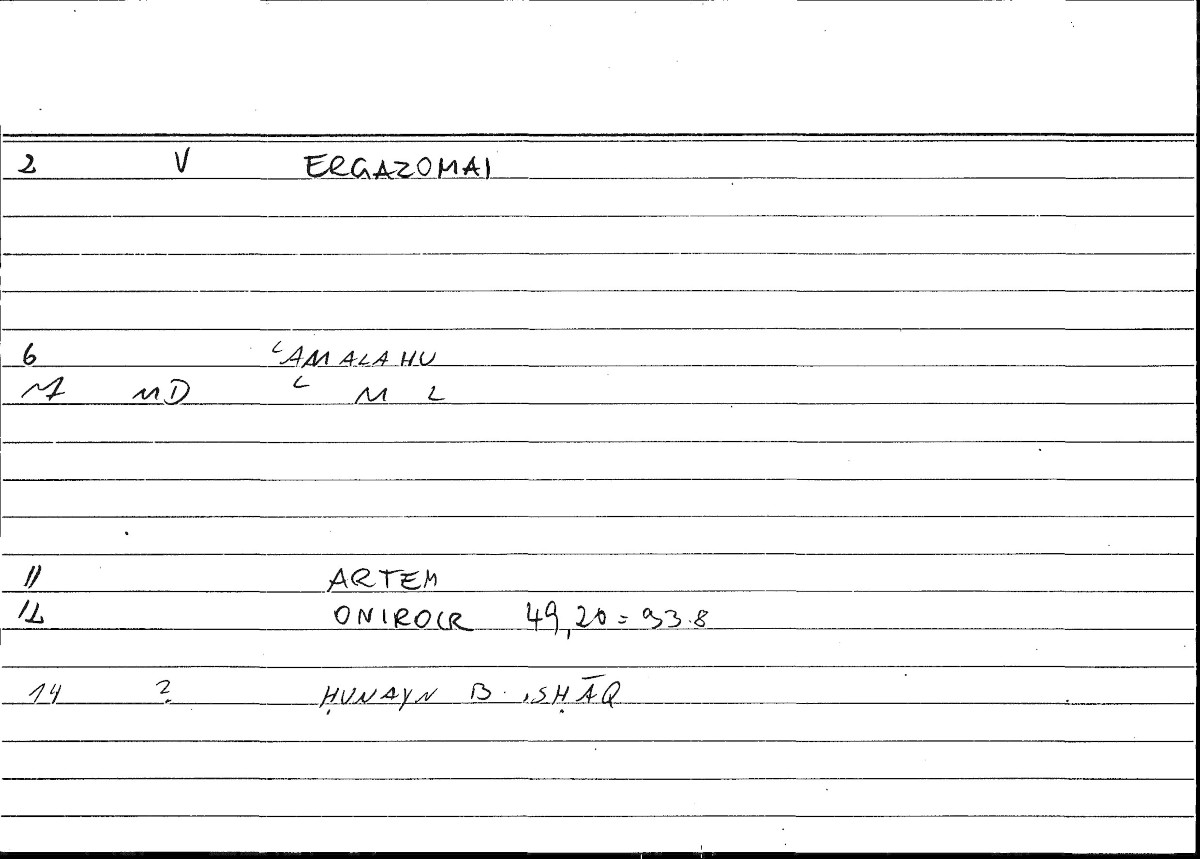 2 V ERGAZOMAI
6 ʿAMALAHU
M MD ʿ M L
11 ARTEM
12 ONIROCR 49,20 = 93.8
14 ? ḤUNAYN B. ISḤĀQ